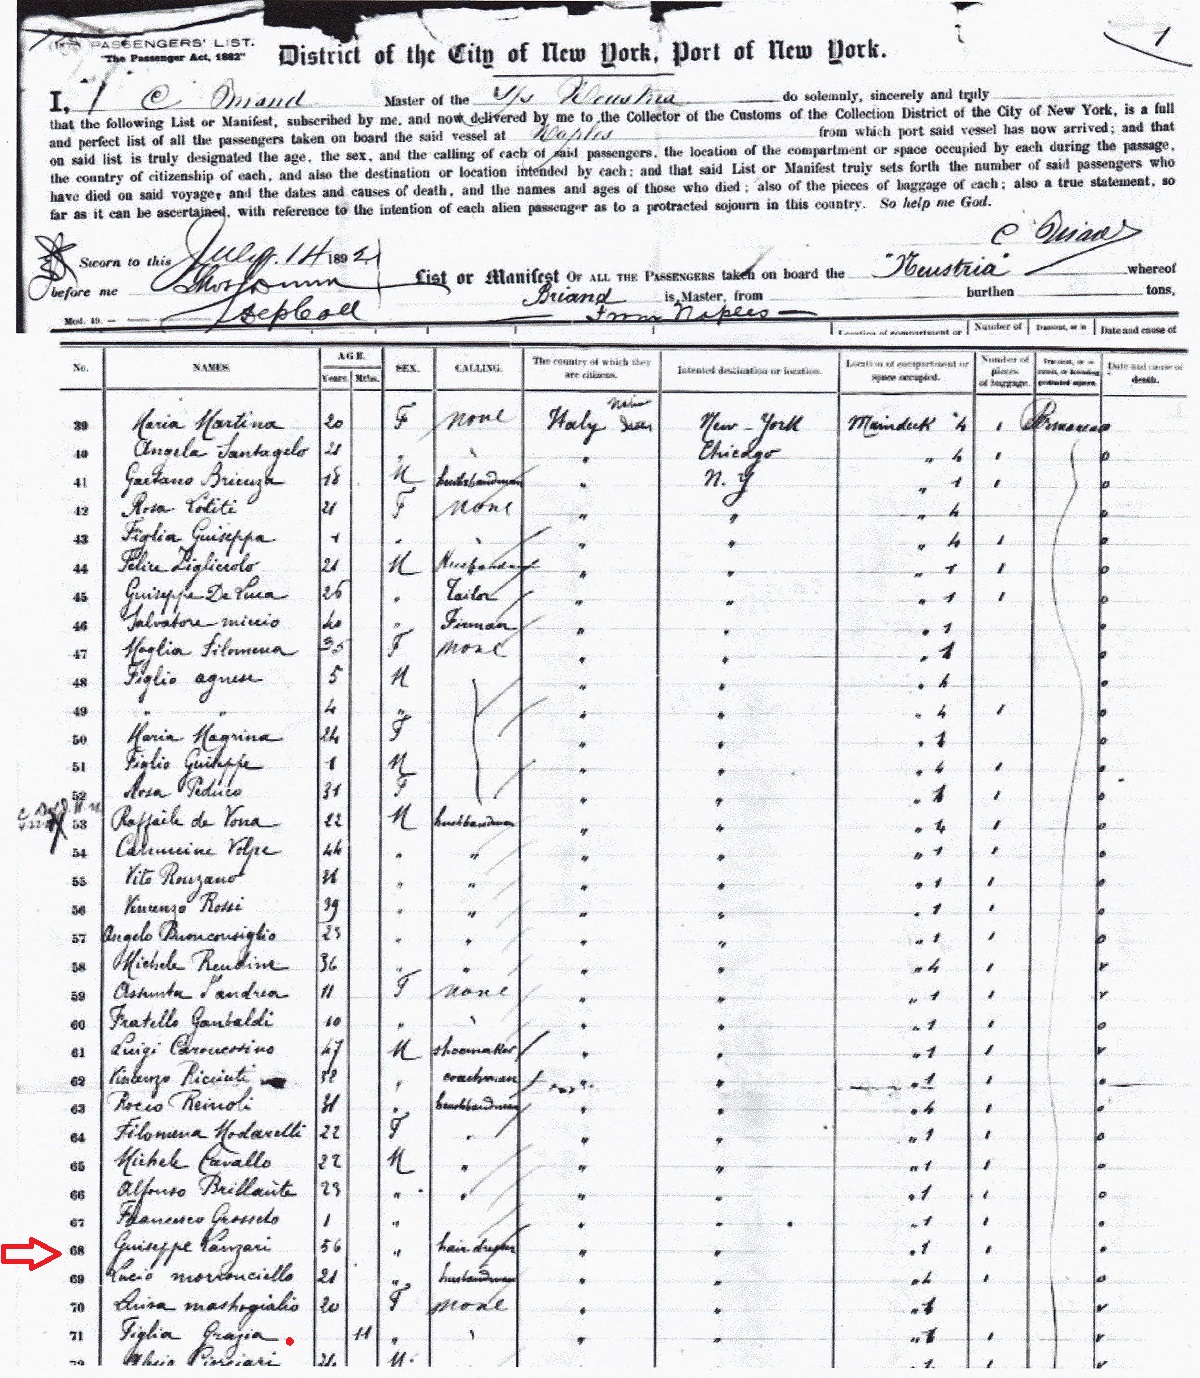 PASSENGERS' LIST.
"The Passenger Act, 1882"
1
District of the City of New York, Port of New York.
I, C Briand Master of the S/s Neustria do solemnly, sincerely and truly
that the following List or Manifest, subscribed by me, and now delivered by me to the Collector of the Customs of the Collection District of the City of New York, is a full
and perfect list of all the passengers taken on board the said vessel at Naples from which port said vessel has now arrived; and that
on said list is truly designated the age, the sex, and the calling of each of said passengers, the location of the compartment or space occupied by each during the passage,
the country of citizenship of each, and also the destination or location intended by each; and that said List or Manifest truly sets forth the number of said passengers who
have died on said voyage, and the dates and causes of death, and the names and ages of those who died; also of the pieces of baggage of each; also a true statement, so
far as it can be ascertained, with reference to the intention of each alien passenger as to a protracted sojourn in this country. So help me God.
C Briand
Sworn to this July 14 1892
before me
Dep Coll
List or Manifest OF ALL THE PASSENGERS taken on board the "Neustria" whereof
Briand is Master, from burthen tons,
From Naples
Mod. 49.
Location of compartment or Number of Transient, or in Date and cause of
No. NAMES. AGE. Years. Mths. SEX. CALLING. The country of which they are citizens. Intented destination or location. Location of compartment or space occupied. Number of pieces of baggage. Date and cause of death.
39 Maria Martina 20 F none Italy New-York Maindeck 4 1
40 Angela Santagelo 21 " Chicago " 4 1
41 Gaetano Brienza 18 M husbandman " N.Y " 1 1
42 Rosa Lotiti 21 F none " " " 4
43 Figlia Guiseppa 1 " " " " 4 1
44 Felice 21 M Husbandman " " " 1 1
45 Guiseppe De Luca 26 " Tailor " " " 1 1
46 Salvatore miccio 40 " Firman " " " 1
47 Maglia Filomena 35 F none " " " 1
48 Figlio agnese 5 M " " " 4
49 " " 4 " " " " 4 1
50 Maria Magrina 24 F " " " 1
51 Figlio Guiseppe 1 M " " " 4 1
52 Rosa Peduco 31 F " " " 1 1
53 Raffaile de Vona 22 M husbandman " " " 4 1
54 Carmine Volpe 44 " " " " " 1 1
55 Vito Ronzano " " " " " 1 1
56 Vincenzo Rossi 39 " " " " " 1 1
57 Angelo Buonconsiglio 23 " " " " " 1 1
58 Michele Rendine 36 " " " " " 4 1
59 Assunta D'andrea 11 F none " " " 1 1
60 Fratello Garibaldi 10 " " " " " 1 1
61 Luigi 47 M shoemaker " " " 1 1
62 Vincenzo Ricciuti " coachman " " " 1 1
63 Rocco Reinoli 31 " husbandman " " " 4 1
64 Filomena Modarelli 22 F " " " " 1 1
65 Michele Cavallo 22 M " " " " 1 1
66 Alfonso Brillante 23 " " " " " 1 1
67 Francesco Grosseto 1 " " " " 1
68 Guiseppe Lanzari 56 " hair dresser " " " 1 1
69 Lucio morronciello 21 " husbandman " " " 4 1
70 Luisa 20 F none " " " 1
71 Figlia Grazia 11 " " " " 1 1
72 M